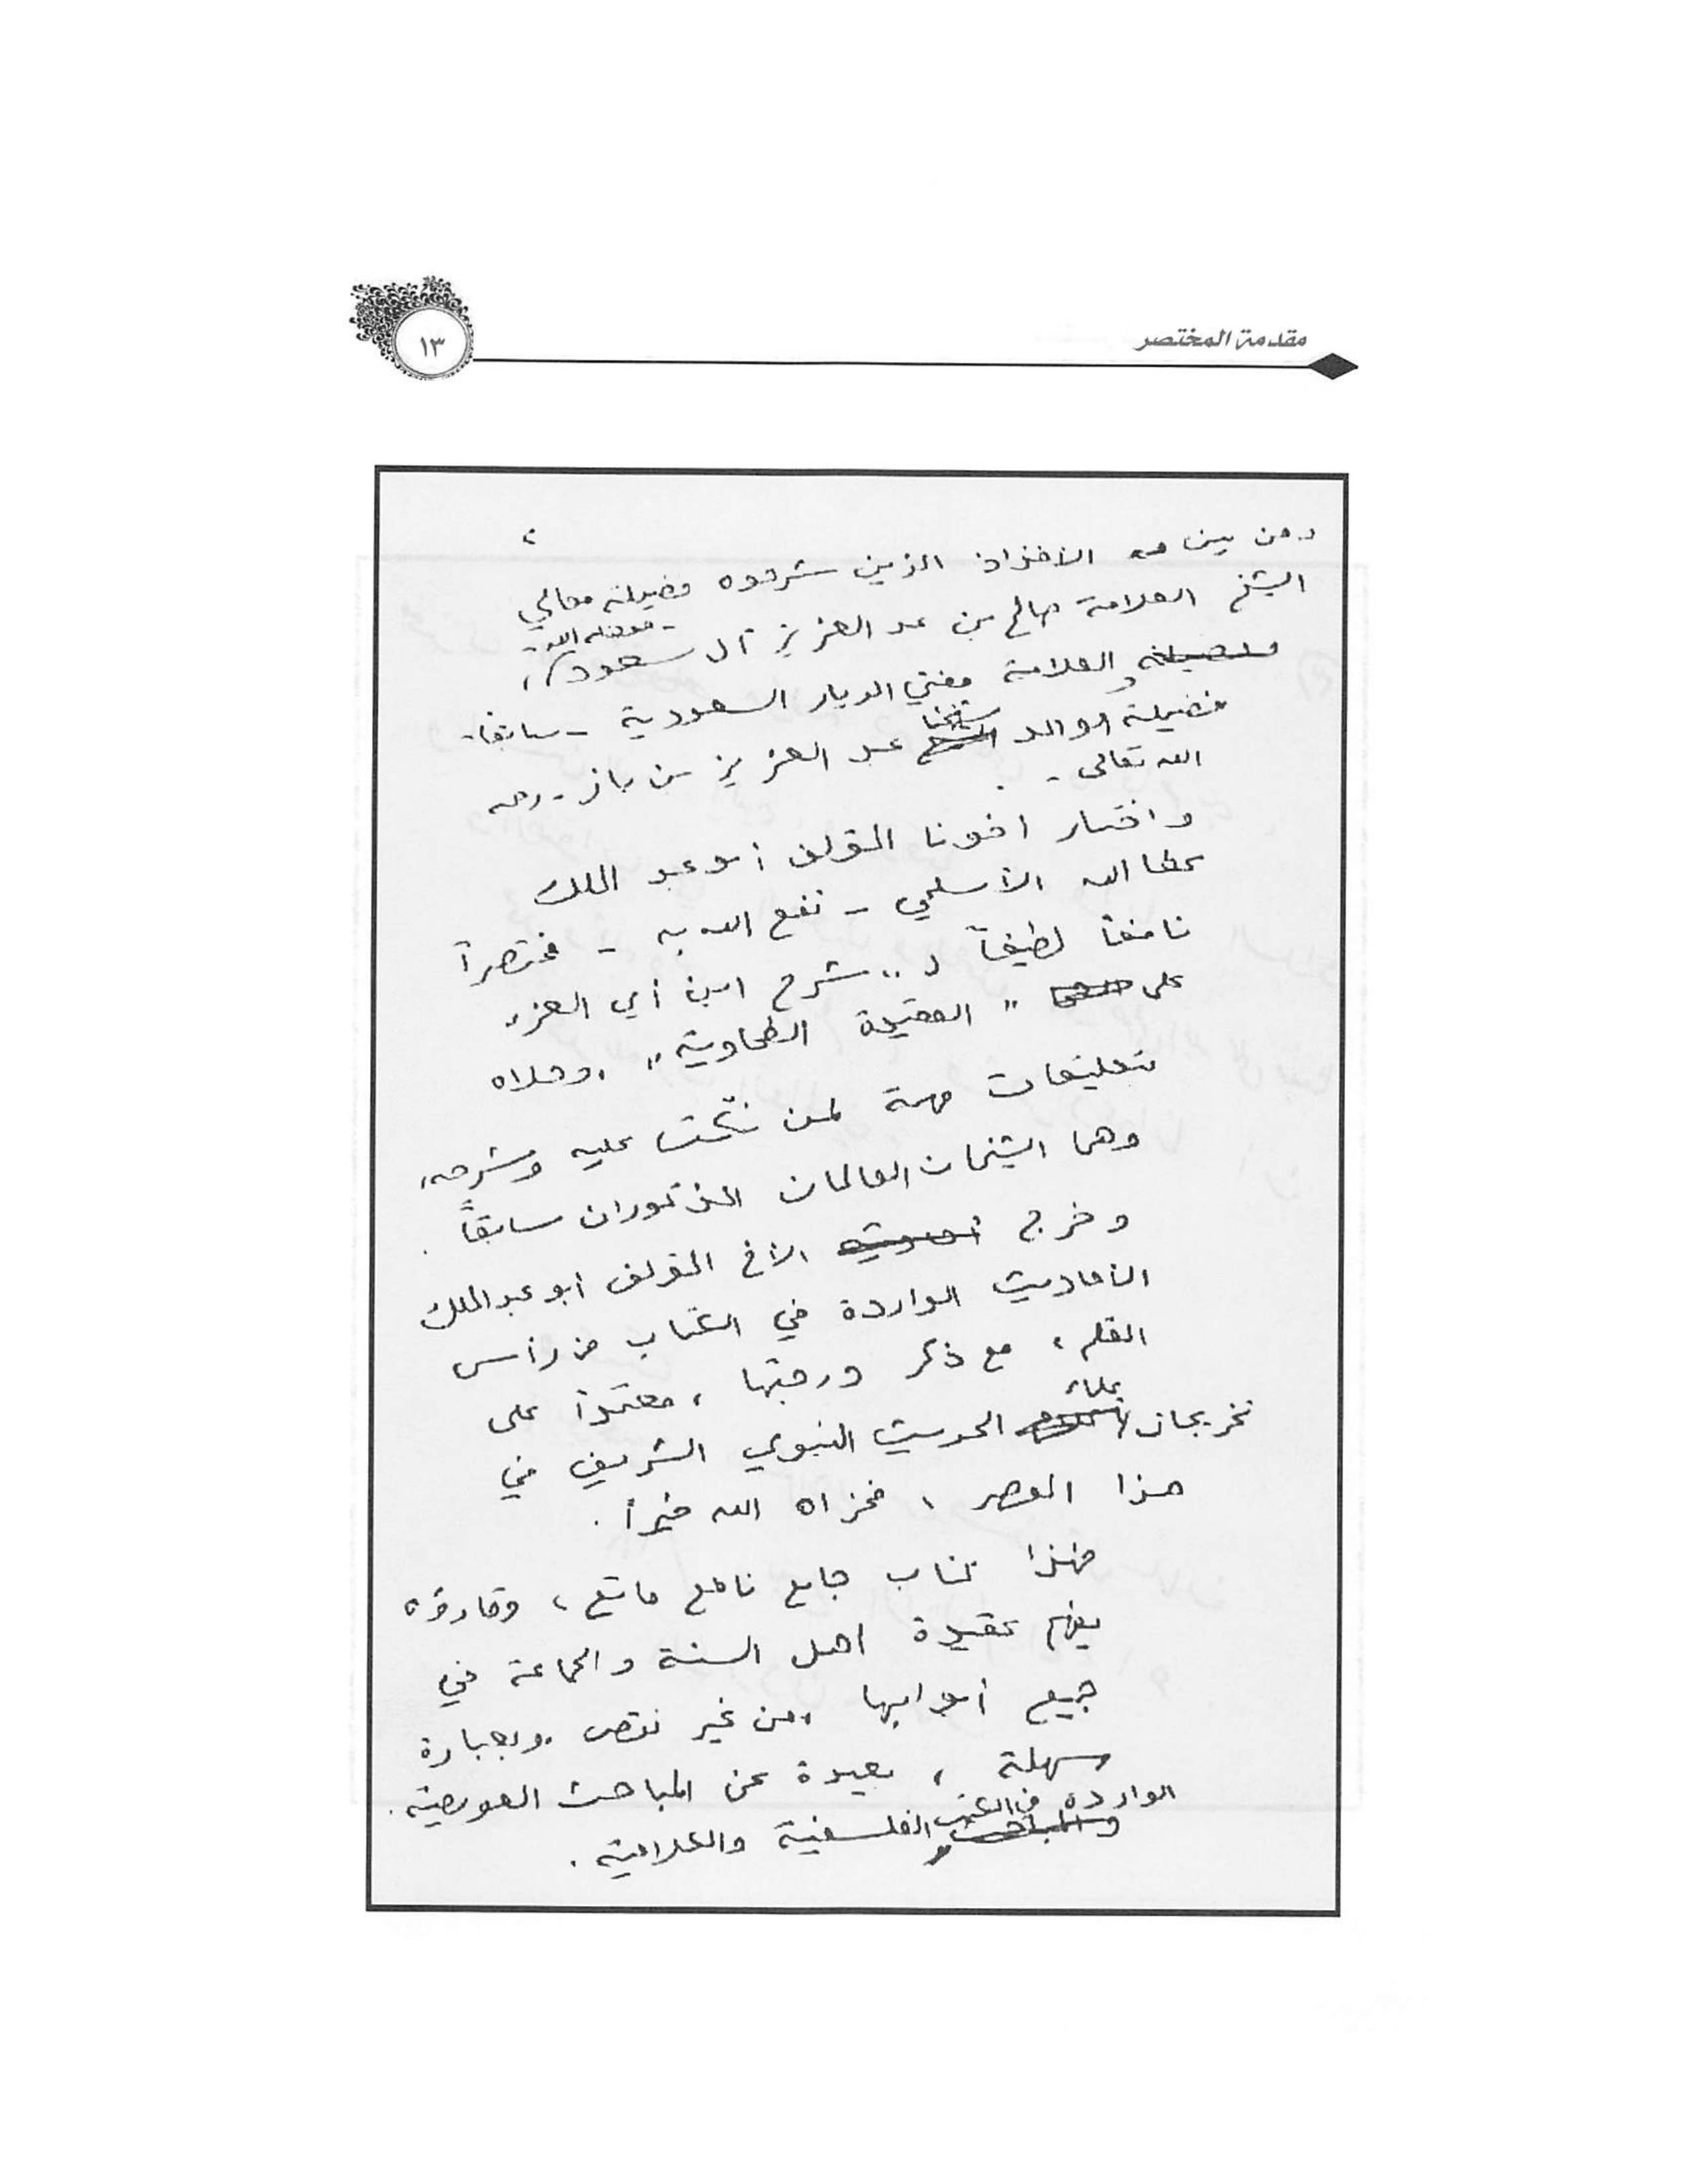 مقدمة المختصر
١٣
ومن بين الأفذاذ الذين شرحوه فضيلة معالي
الشيخ العلامة صالح بن عبد العزيز آل سعود
- حفظه الله -
والعلامة مفتي الديار السعودية - سابقاً -
فضيلة الوالد شيخنا عبد العزيز بن باز - رحمه
الله تعالى - .
واختار اخونا المؤلف أبو عبد الملك
عطا الله الأسلمي - نفع الله به - مختصراً
نافعاً لطيفاً لـ "شرح ابن أبي العز"
على "العقيدة الطحاوية" ، وحلاه
بتعليقات مهمة لمن نكّت عليه وشرحه،
وهما الشيخان العالمان المذكوران سابقاً .
وخرج الأخ المؤلف ابو عبد الملك
الأحاديث الواردة في الكتاب من رأس
القلم ، مع ذكر درجتها ، معتمداً على
تخريجات علماء الحديث النبوي الشريف في
هذا العصر ، فجزاه الله خيراً .
فهذا كتاب جامع نافع ماتع ، وقارؤه
يفهم عقيدة اهل السنة والجماعة في
جميع أبوابها ، من غير نقص ، وبعبارة
سهلة ، بعيدة عن المباحث العويصة .
الواردة في الكتب الفلسفية والكلامية .